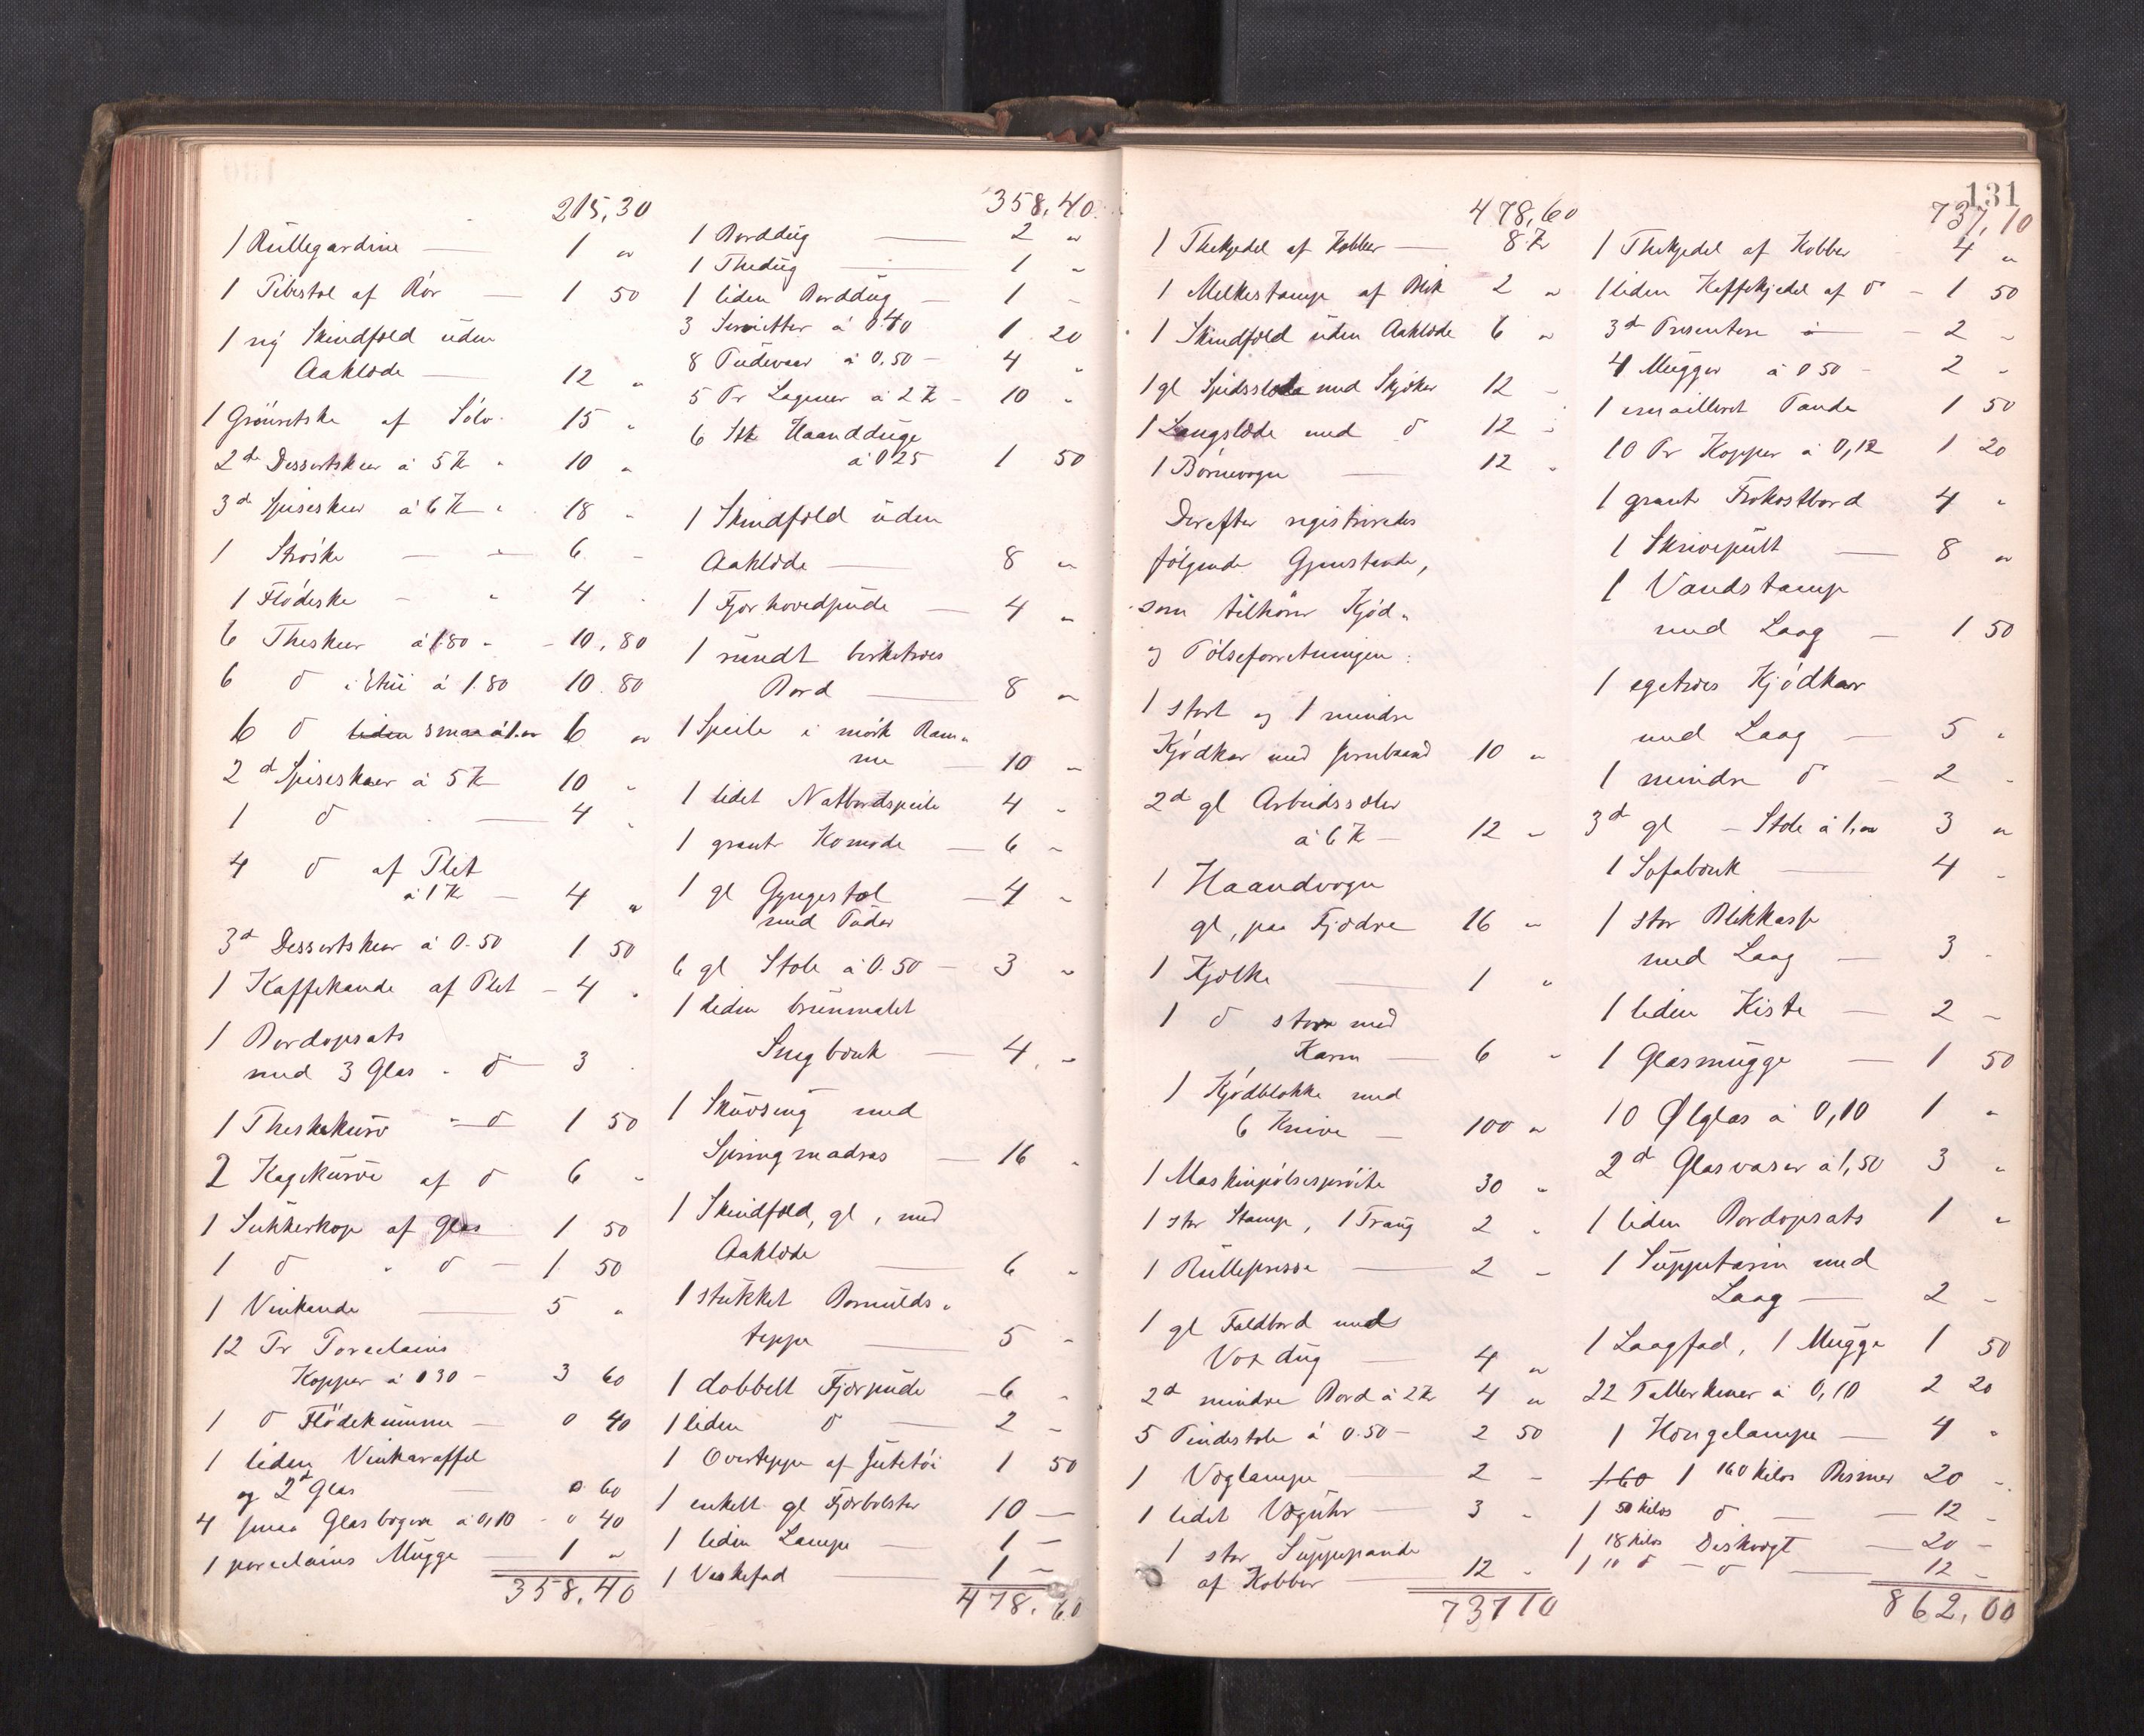 215,30
1 Rullegardine — 1 "
1 Pibestol af Rör — 1 50
1 ny Skindfæld uden
Aaklæde — 12 "
1 Grönretske af Sölv. 15 "
2d Dessertskeer à 5 Kr " 10 "
3d Spiseskeer à 6 Kr " 18 "
1 Ströske — " 6 "
1 Flödeske — " 4 "
6 Theskeer à 1.80 " - 10,80
6 d i Etui à 1.80 10.80
6 d liden smaa à 1." 6 "
2d Spiseskeer à 5 Kr 10 "
1 d — 4 "
4 d af Plet
à 1 Kr — 4 "
3d Dessertskeer à 0.50 1 50
1 Kaffekande af Plet — 4 "
1 Bordopsats
med 3 Glas " d 3 "
1 Theskekurv " d 1 50
2 Kagekurve af d 6 "
1 Sukkerkop af Glas 1 50
1 d " d — 1 50
1 Vinkande — 5 "
12 Pr Porcelains
Kopper à 0 30 — 3 60
1 d Flödekumme — 0 40
1 liden Vinkaraffel
og 2d Glas — 0 60
4 smaa Glasbægere à 0,10 - 0 40
1 porcelains Mugge — 1 "
358,40
358,40
1 Borddug — 2 "
1 Thedug — 1 "
1 liden Borddug — 1 "
3 Servietter à 0.40 1 20
8 Pudevaar à 0,50 — 4 "
5 Pr Lagener à 2 Kr — 10 "
6 Stk Haandduge
à 0 25 1 50
1 Skindfæld uden
Aaklæde — 8 "
1 Fjær hovedpude — 4 "
1 rundt birketræes
Bord — 8 "
1 Speile i mörk Ram"
me — 10 "
1 lidet Natbordspeile 4 "
1 grant Komode — 6 "
1 gl Gyngestol — 4 "
med Puder
6 gl Stole à 0.50 — 3 "
1 liden brunmalet
Slagbænk — 4 "
1 Skuvseng med
Springmadras — 16 "
1 Skindfæld, gl, med
Aaklæde — 6 "
1 stukket Bomulds"
teppe — 5 "
1 dobbelt Fjærpude — 6 "
1 liden d — 2 "
1 Overteppe af Jutetöi 1 50
1 enkelt gl Fjærbolster 10 —
1 liden Lampe — 1 —
1 Vaskefad — 1 "
478,60
131
478,60
1 Thekjedel af Kobber — 8 Kr
1 Melkestamp af Blik 2 "
1 Skindfæld uden Aaklæde 6 "
1 gl Spidsslæde med Skjæker 12 "
1 Langslæde med d 12 "
1 Börnevogn — 12 "
Derefter registreredes
fölgende Gjenstande,
som tilhörer Kjöd"
og Pölseforretningen:
1 stort og 1 mindre
Kjödkar med Jernbaand 10 "
2d gl Arbeidsseler
à 6 Kr — 12 "
1 Haandvogn
gl, paa Fjædre 16 "
1 Kjælke — 1 "
1 d stor med
Karm — 6 "
1 Kjödblokke med
6 Knive — 100 "
1 Maskinpölsespröite 30 "
1 stor Stamp, 1 Traug 2 "
1 Rullepresse — 2 "
1 gl Faldbord med
Vox dug — 4 "
2d mindre Bord à 2 Kr 4 "
5 Pindestole à 0.50 — 2 50
1 Væglampe — 2 "
1 lidet Væguhr — 3 "
1 stor Suppepande
af Kobber — 12 "
737 10
737,10
1 Thekjedel af Kobber 4 "
1 liden Kaffekjedel af d — 1 50
3d Presentere — 2 "
4 Mugger à 0 50 — 2 "
1 emailleret Pande 1 50
10 Pr Kopper à 0,12 1 20
1 grant Frokostbord 4 "
1 Skrivepult — 8 "
1 Vandstamp
med Laag — 1 50
1 egetræes Kjödkar
med Laag — 5 "
1 mindre d — 2 "
3d gl — Stole à 1," 3 "
1 Sofabænk — 4 "
1 stor Blikkasse
med Laag — 3 "
1 liden Kiste — 2 "
1 Glasmugge — 1 50
10 Ølglas à 0,10 1 "
2d Glasvaser à 1,50 3 "
1 liden Bordopsats 1 "
1 Suppeterin med
Laag — 2 "
1 Laagfad, 1 Mugge 1 50
22 Tallerkener à 0,10 2 20
1 Hængelampe — 4 "
160 1 160 kilos Bismer 20 "
1 50 kilos d — 12 "
1 18 kilos Diskvægt — 20 "
1 10 d — d — 12 "
862,00